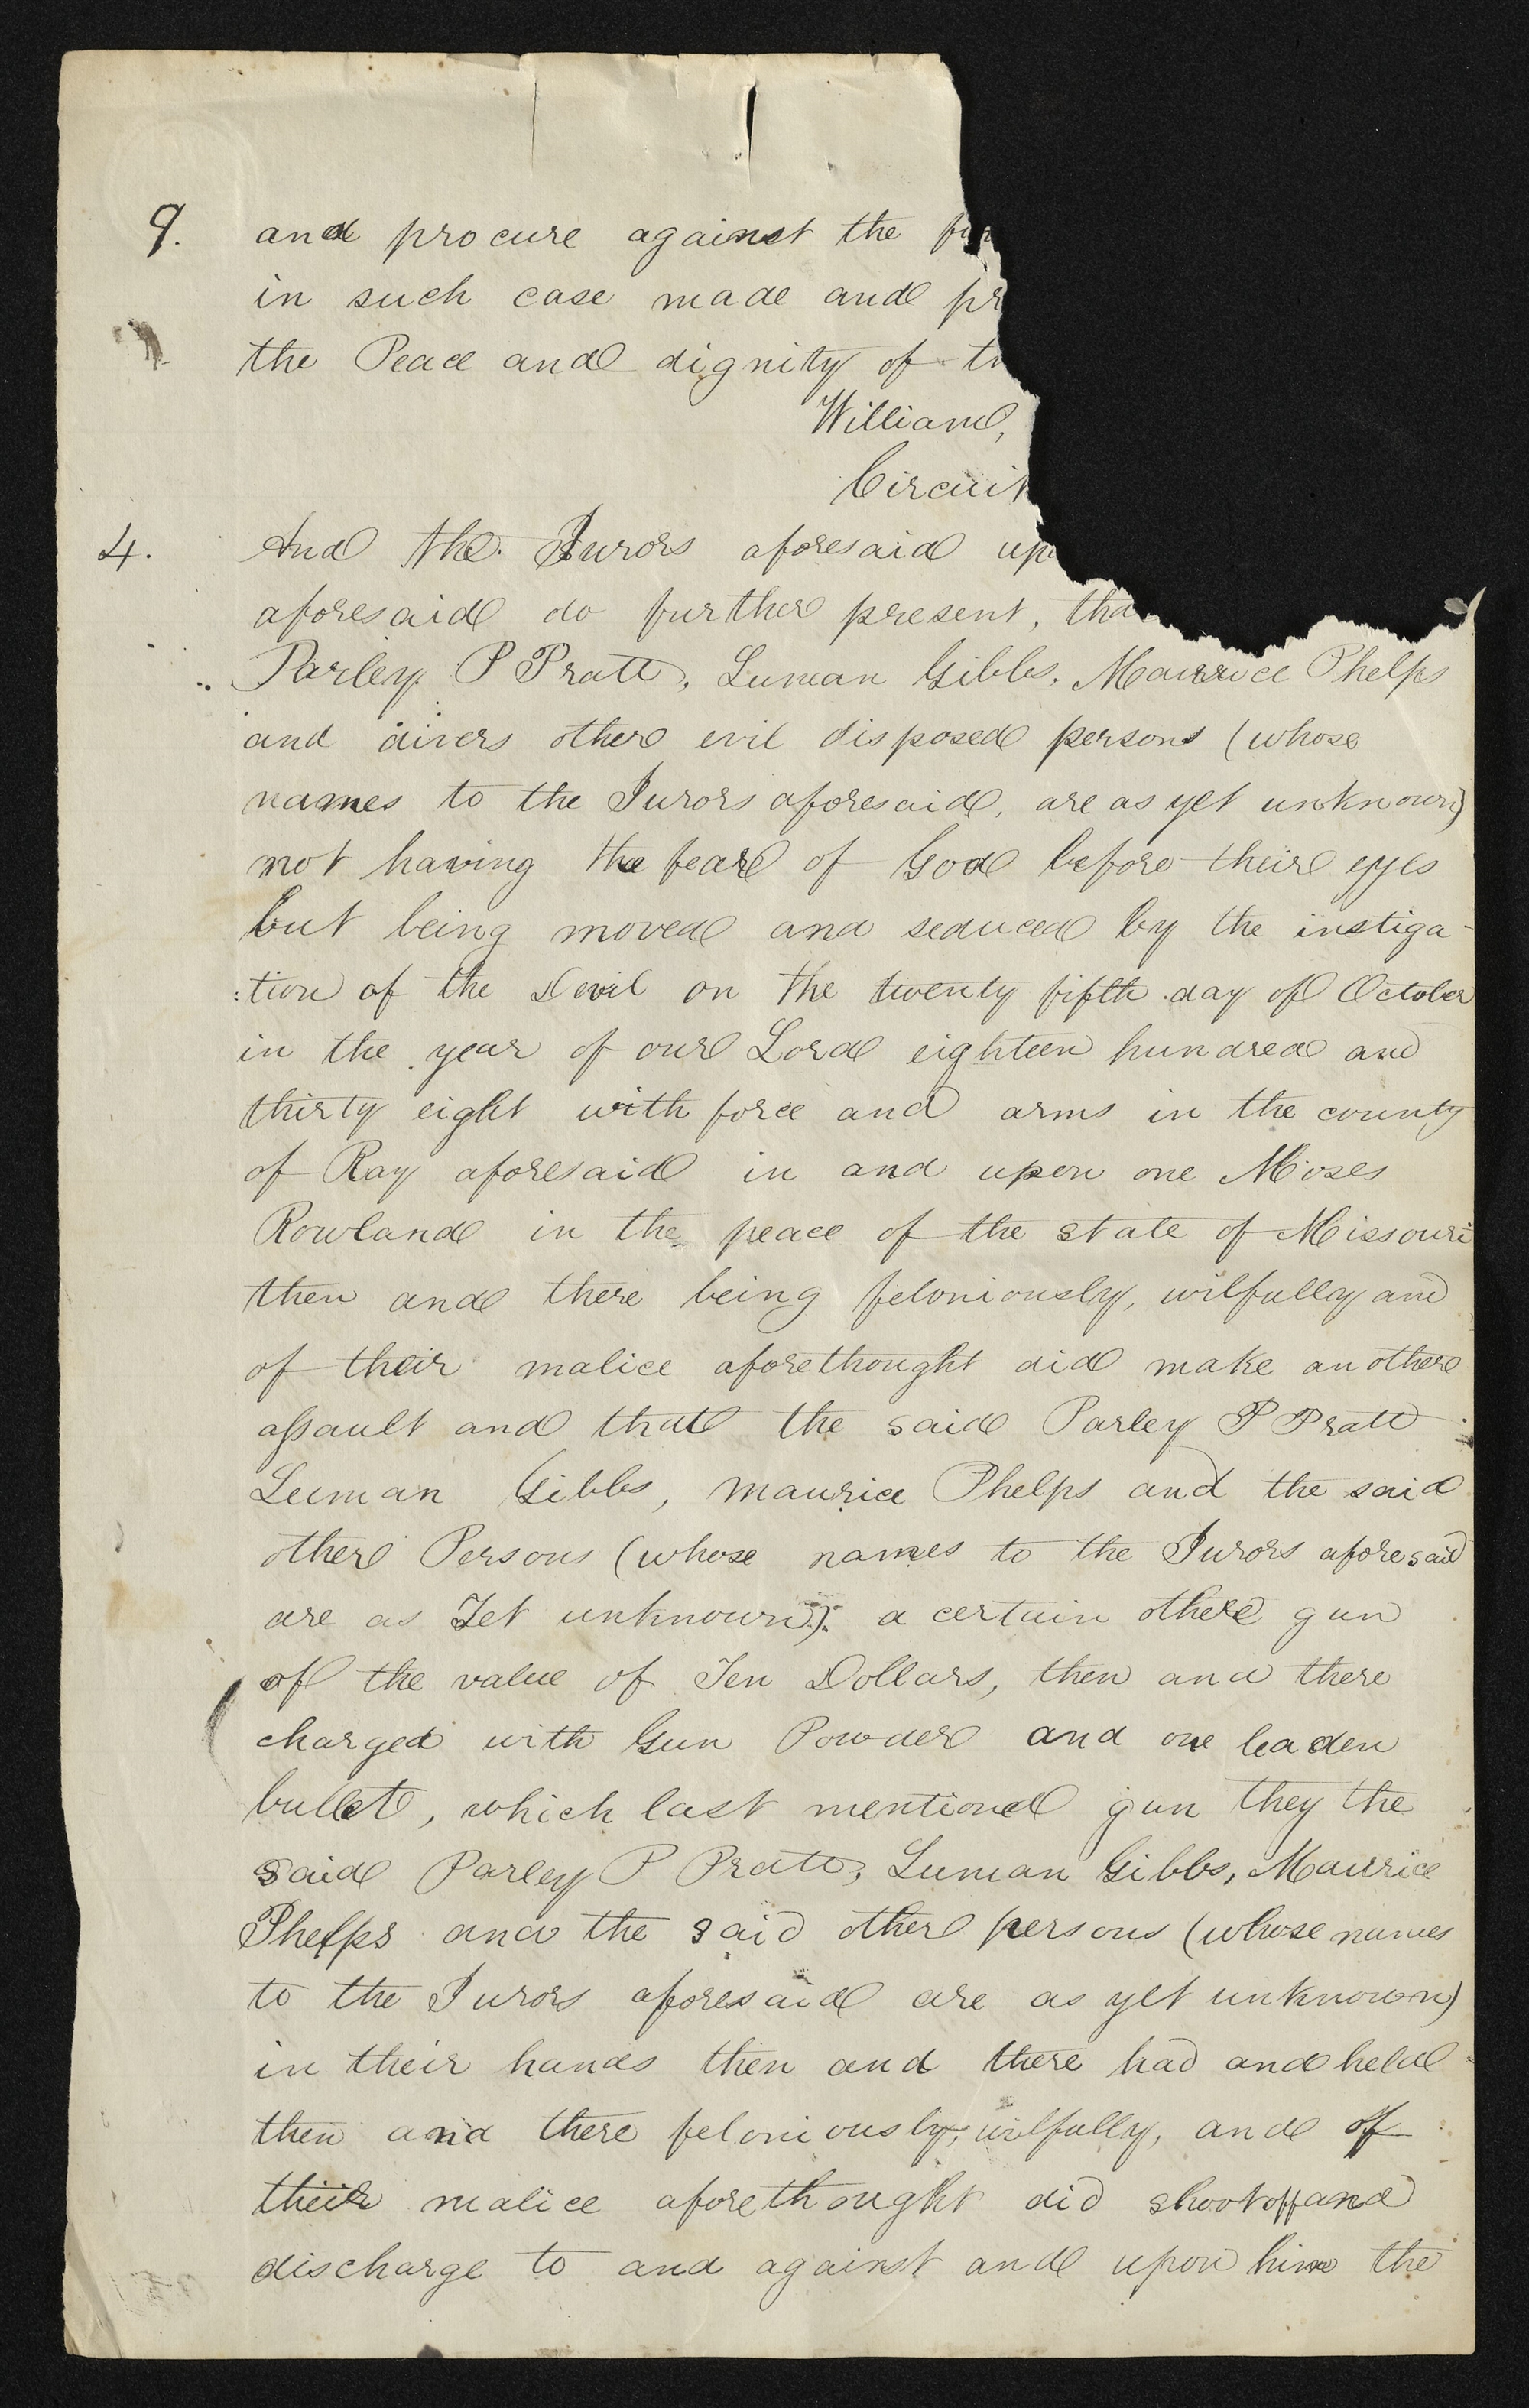 9. and procure against the
in such case made and pr
the Peace and dignity of
William,
Circuit
4. And the Jurors aforesaid up
aforesaid do further present, tha
Parley P Pratt, Luman Gibbs, Maurice Phelps
and divers other evil disposed persons (whose
names to the Jurors aforesaid, are as yet unknown)
not having the fear of God before their eyes
but being moved and seduced by the instiga-
:tion of the Devil on the twenty fifth day of October
in the year of our Lord eighteen hundred and
thirty eight with force and arms in the county
of Ray aforesaid in and upon one Moses
Rowland in the peace of the state of Missouri
then and there being feloniously, wilfully and
of their malice aforethought did make another
assault and that the said Parley P Pratt
Luman Gibbs, Maurice Phelps and the said
other Persons (whose names to the Jurors aforesaid
are as Yet unknown) a certain other gun
of the value of Ten Dollars, then and there
charged with Gun Powder and one leaden
bullet, which last mentioned gun they the
said Parley P Pratt, Luman Gibbs, Maurice
Phelps and the said other persons (whose names
to the Jurors aforesaid are as yet unknown)
in their hands then and there had and held
then and there feloniously, wilfully, and of
their malice aforethought did shoot off and
discharge to and against and upon him the